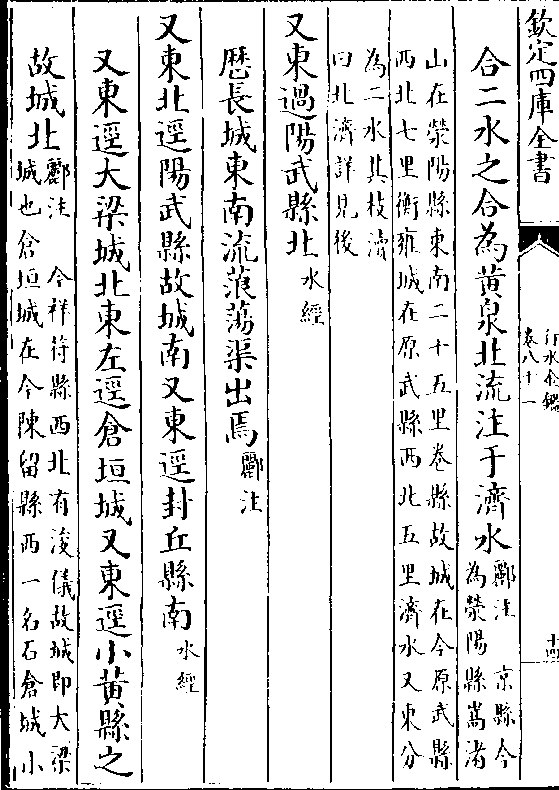 欽定四庫全書
行水金鑑
卷八十一
十四
合二水之合為黃泉北流注于濟水酈注 京縣今
為滎陽縣嵩渚
山在滎陽縣東南二十五里卷縣故城在今原武縣
西北七里衡雍城在原武縣西北五里濟水又東分
為二水其枝瀆
曰北濟詳見後
又東過陽武縣北水經
歷長城東南流蒗蕩渠出焉酈注
又東北逕陽武縣故城南又東逕封丘縣南水經
又東逕大梁城北東左逕倉垣城又東逕小黃縣之
故城北酈注 今祥符縣西北有浚儀故城即大梁
城也倉垣城在今陳留縣西一名石倉城小